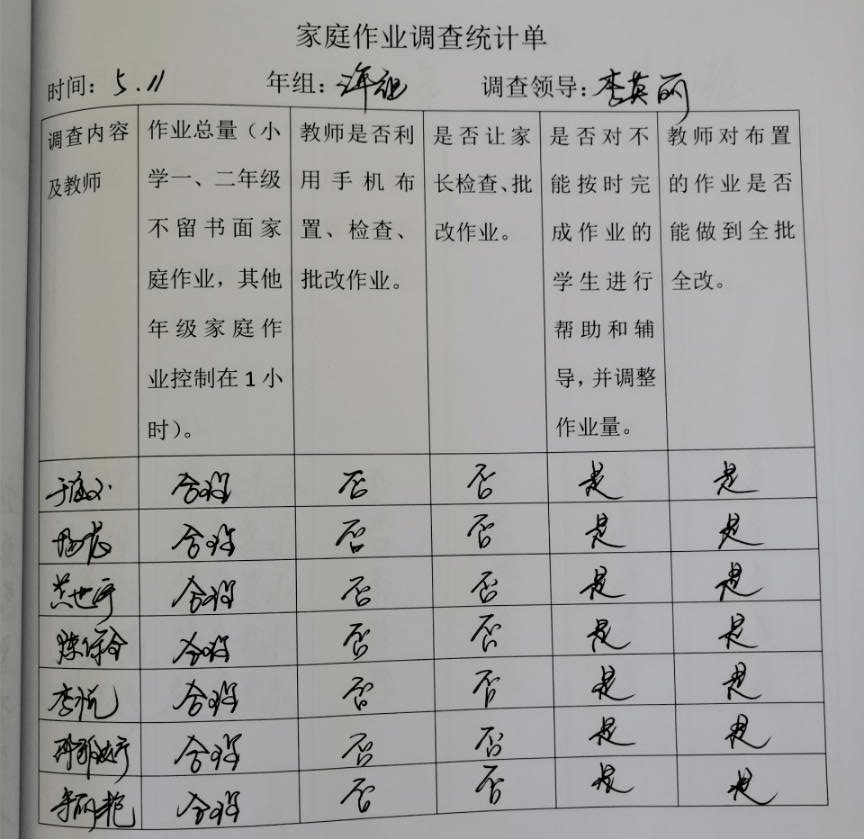 家庭作业调查统计单
时间：5.11 年组： 调查领导：李英丽
调查内容及教师 作业总量（小学一、二年级不留书面家庭作业，其他年级家庭作业控制在1小时）。 教师是否利用手机布置、检查、批改作业。 是否让家长检查、批改作业。 是否对不能按时完成作业的学生进行帮助和辅导，并调整作业量。 教师对布置的作业是否能做到全批全改。
合理 否 否 是 是
合理 否 否 是 是
合理 否 否 是 是
合理 否 否 是 是
李悦 合理 否 否 是 是
合理 否 否 是 是
合理 否 否 是 是